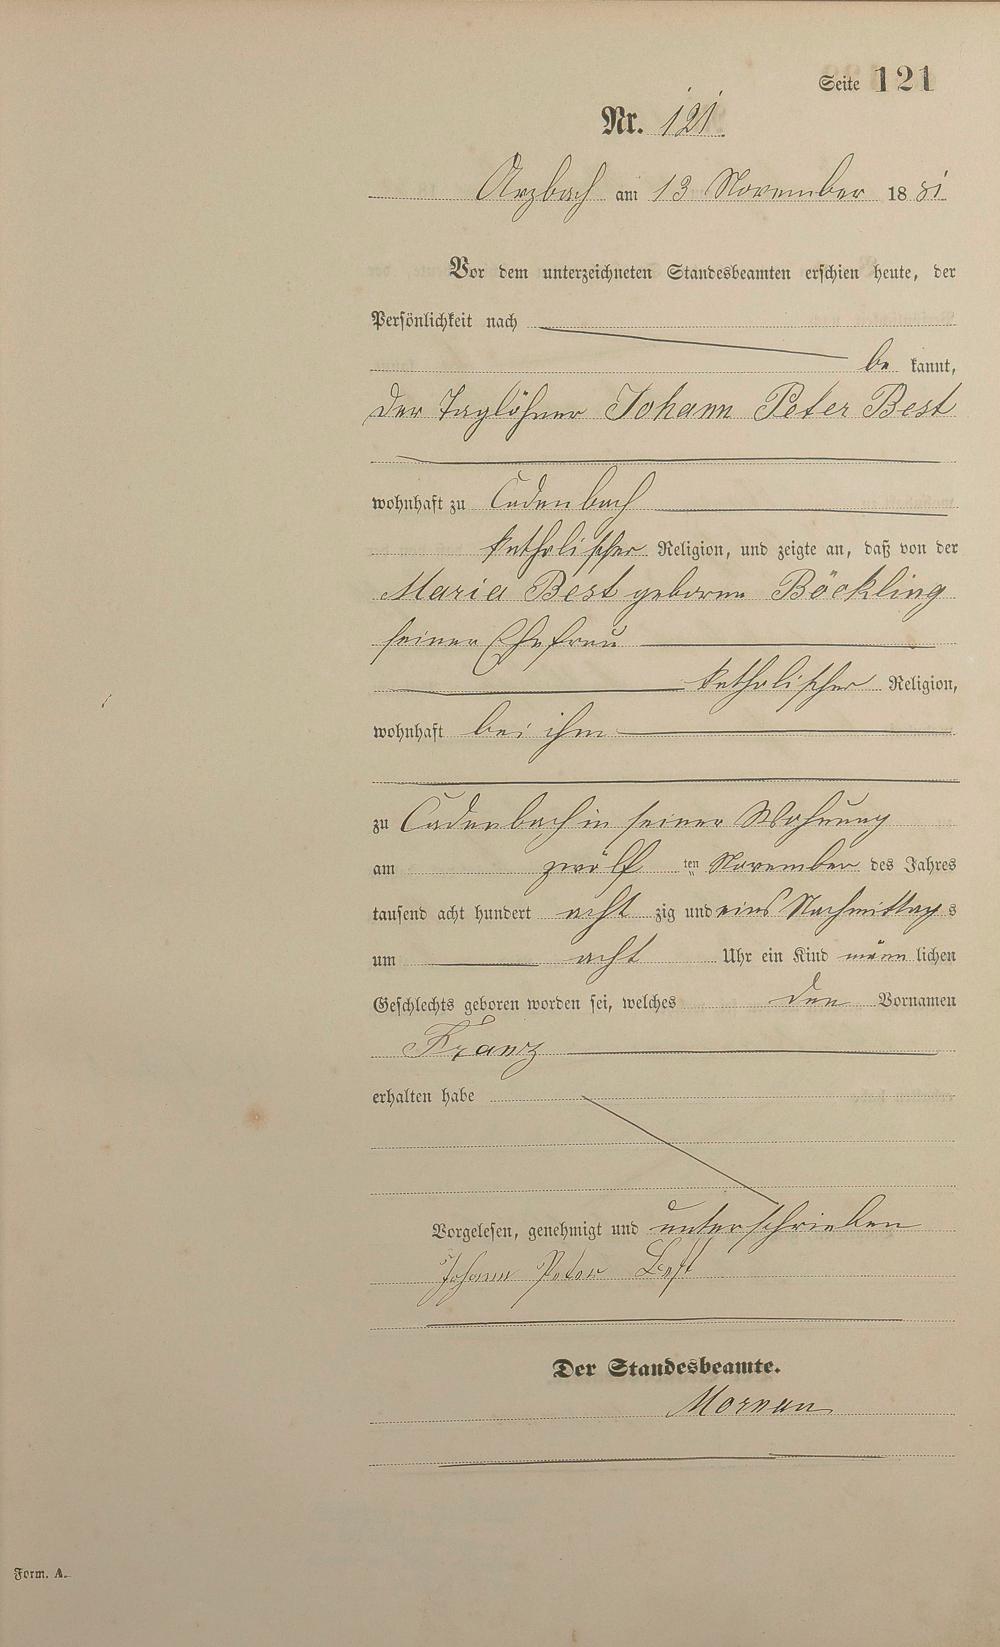 Seite 121
Nr. 121
Arzbach am 13 November 1881
Vor dem unterzeichneten Standesbeamten erschien heute, der
Persönlichkeit nach
be kannt,
der Taglöhner Johann Peter Best
wohnhaft zu Cadenbach
katholischer Religion, und zeigte an, daß von der
Maria Best geborene Böckling
seiner Ehefrau
katholischer Religion,
wohnhaft bei ihm
zu Cadenbach in seiner Wohnung
am zwölf ten November des Jahres
tausend acht hundert acht zig und eins Nachmittags
um acht Uhr ein Kind männ lichen
Geschlechts geboren worden sei, welches den Vornamen
Franz
erhalten habe
Vorgelesen, genehmigt und unterschrieben
Johann Peter Best
Der Standesbeamte.
Form. A.